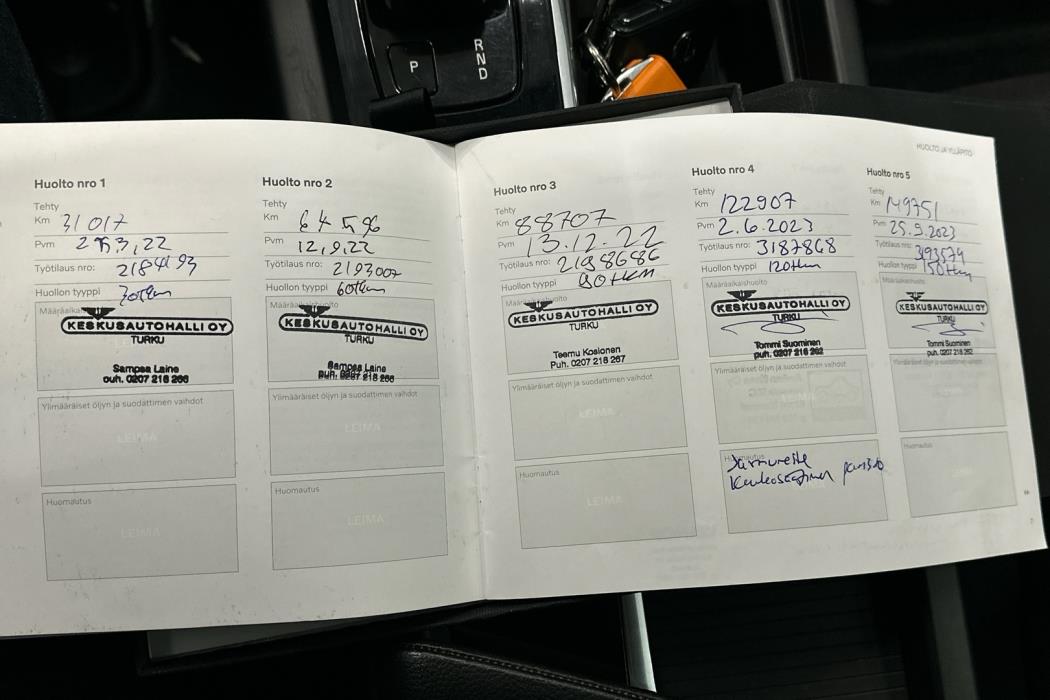 P
R
N
D
HUOLTO JA YLLÄPITO
Huolto nro 1
Tehty
Km 31 017
Pvm
Työtilaus nro: 2184193
Huollon tyyppi 30tkm
KESKUSAUTOHALLI OY
TURKU
Sampsa Laine
puh. 0207 218 266
Ylimääräiset öljyn ja suodattimen vaihdot
LEIMA
Huomautus
LEIMA
Huolto nro 2
Tehty
Km 64596
Pvm 12,9,22
Työtilaus nro: 2193007
Huollon tyyppi 60tkm
Määräaikaishuolto
KESKUSAUTOHALLI OY
TURKU
Sampsa Laine
puh. 0207 218 266
Ylimääräiset öljyn ja suodattimen vaihdot
LEIMA
Huomautus
LEIMA
Huolto nro 3
Tehty
Km 88707
Pvm 13.12.22
Työtilaus nro: 2198686
Huollon tyyppi 90tkm
KESKUSAUTOHALLI OY
TURKU
Teemu Kosionen
Puh. 0207 218 267
Ylimääräiset öljyn ja suodattimen vaihdot
LEIMA
Huomautus
LEIMA
Huolto nro 4
Tehty
Km 122907
Pvm 2.6.2023
Työtilaus nro: 3187868
Huollon tyyppi 120tkm
Määräaikaishuolto
KESKUSAUTOHALLI OY
TURKU
Tommi Suominen
puh. 0207 218 262
Ylimääräiset öljyn ja suodattimen vaihdot
LEIMA
Huomautus
Huolto nro 5
Tehty
Km 149751
Pvm 25.9.2023
Työtilaus nro: 3193574
Huollon tyyppi 150tkm
Määräaikaishuolto
KESKUSAUTOHALLI OY
TURKU
Tommi Suominen
puh. 0207 218 262
Ylimääräiset öljyn ja suodattimen vaihdot
Huomautus